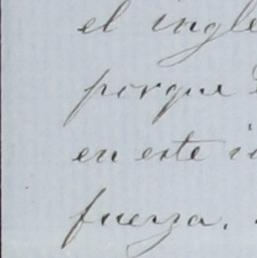 el ingle
porque
en este i
fuerza.